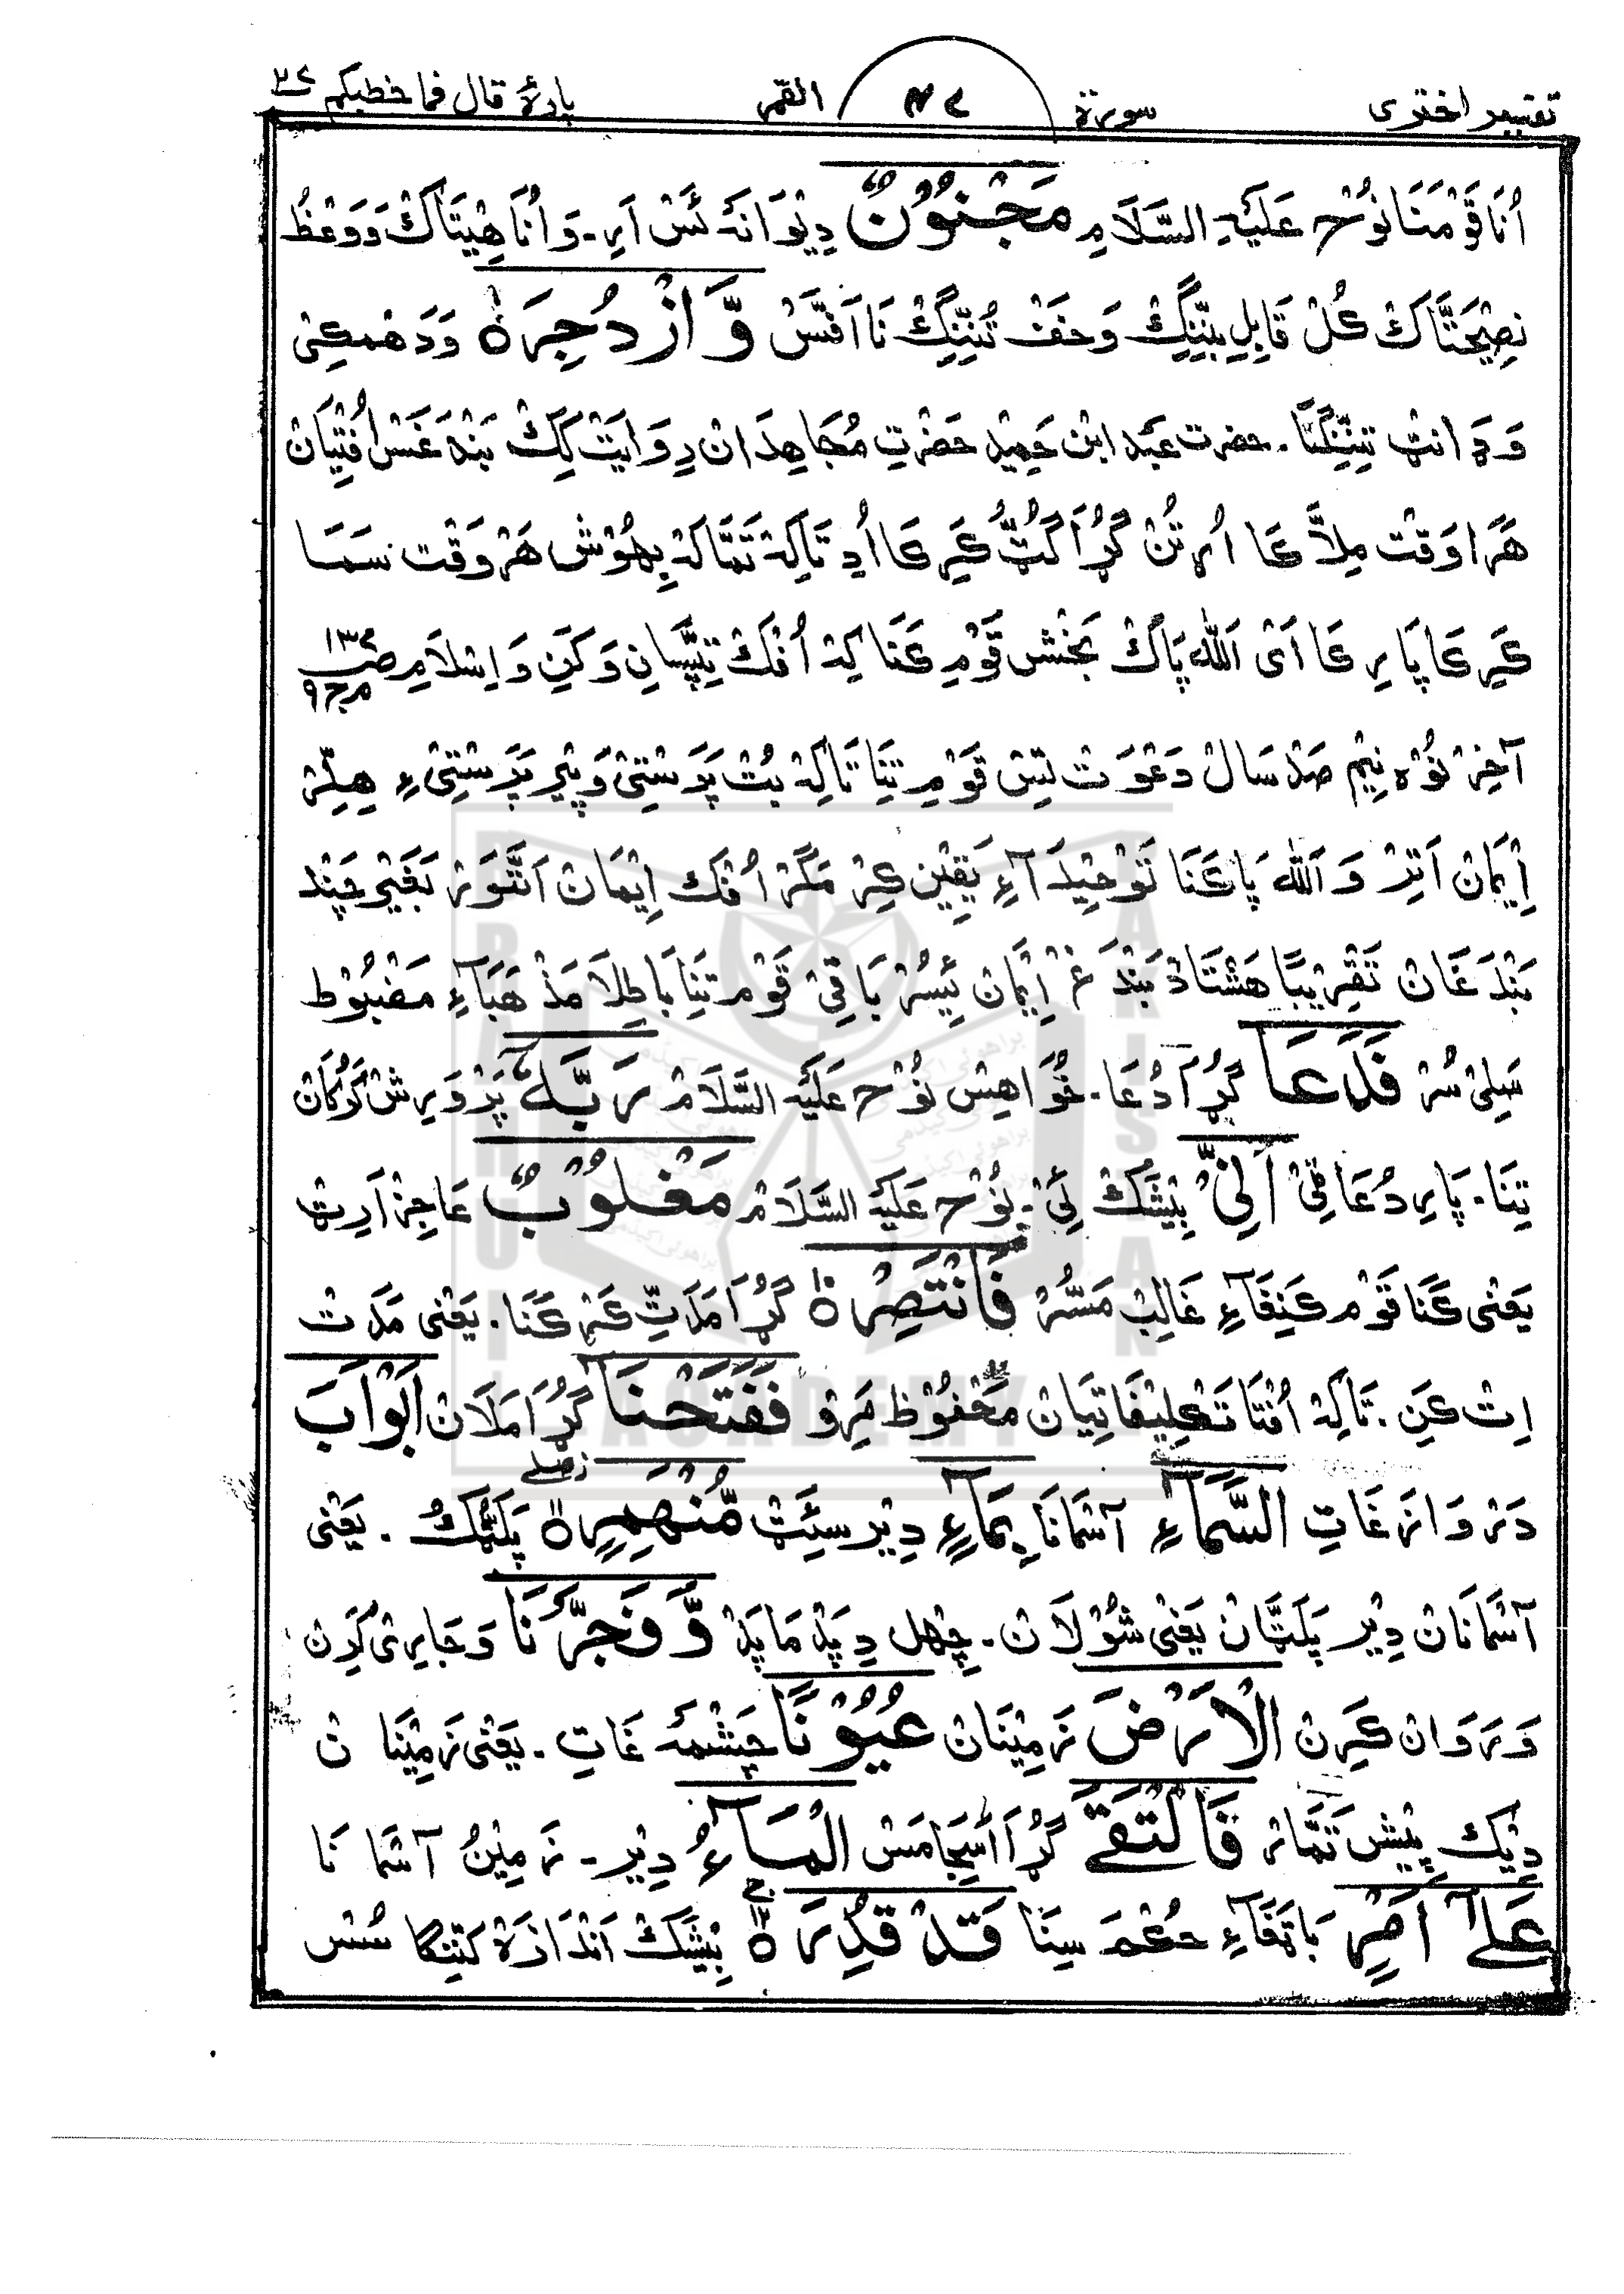 تفسیر اختری سورۃ القمر پارۂ قال فما خطبکم ۲۷
اُنَا قَوْمَنَا نُوْحْ عَلَیْہِ السَّلَامِ مَجْنُوْنٌ دِیْوَانَہ ئَسْ اَرِ۔ وَ اُنَا ھِیْتَاکْ وَ وَعْظُ
نصِیْحَتَّاکْ کُلْ قَابِلِ بِنِّنِگِکْ وَ خفت تُنِنِّگِکْ نَا اَفَسْ وَّ ازْدُجِرَ ہ وَ دَھْمکِیْ
وَ تِنِنِّگَا۔ حضرت عَبد ابْن حَمِیْد حَضْرتِ مُجَاھِدَ انْ رِوَایَتْ کِکْ بَنْدَغَسْ اُفْتِیَانْ
ھَرَا وَقْت مِلَّا کَا اُرتُنْ گُڑَا کَرِ کَا اُدِ تَاکِہْ تَمَّا کَہْ بِھُوْش ھَرْ وَقْت سَمَا
کَرِ کَا پَارِ کَا اَیْ اَللہ پَاکْ بَخْش قَوْمِ کَنَا کِہْ اُفْکْ تِپَّسَانِ وَ کَنِ وَ اِسْلَامِ
آخِرْ نُوْہ نِیْم صَدْ سَالْ دَعْوَتْ تِسْ قَوْمِ تِنَا تَاکِہْ بُتْ پَرَسْتِیْ وَ پِیْر پَرَسْتِیْ ءِ ھِلِّرْ
اِیْمَانْ اَتِرْ وَ اَللہ پَاکَنَا تَوْحِیْدَ آءِ یَقِیْن کِرْ مَگَرْ اُفْکْ اِیْمَانْ اَتَّوَرْ بَغَیْر چَنْد
بَنْدَغَانْ تَقْرِیْبًا ھَشْتَادْ بَنْدَغْ اِیْمَانْ ئِیسُرْ بَاقِیْ قَوْم تِنَا بَاطِلَا مَذْھَبَآءِ مَضْبُوْط
سَلِیْ سُرْ فَدَعَا گُڑَا دُعَا۔ خُوَاھِس نُوْح عَلَیْہِ السَّلَامْ رَبَّہٗٓ پَرْوَرِشْ کَرُوکَانْ
تِنَا۔ پَارِ دُعَا قِیْ اَنِّیْ بِیْشَکْ اِیْ نُوْح عَلَیْہِ السَّلَامْ مَغْلُوْبٌ عَاجِزْ اَرِیْٹ
یَعْنِی کَنَا قَوْم کَنِغَآءِ غَالِبْ مَسُّرْ فَانْتَصِرْ ہ گُڑَا مَدَتِّ کَرْ کَنَا۔ یَعْنِی مَدَتْ
اِتْ کَنِ۔ تَاکِہْ اُفْتَا تَکْلِیْفَاتِیَانْ مَحْفُوْظ مَرِوْ فَفَتَحْنَآ گُڑَا مَلَانْ اَبْوَابَ
دَرْ وَازَغَاتِ السَّمَآءِ آسْمَانَا بِمَآءٍ دِیْرسِیَٹ مُّنْھَمِرٍ ہ پَلَنُّکْ۔ یَعْنِی
آسْمَانَانْ دِیْر پَلَتَّانْ یَعْنِی شُوْلَانْ۔ چِھل دِ پَدْ مَا پَدْ وَّفَجَّرْنَا وَ جَارِیْ کَرِنْ
وَ رَوَانْ کَرِنْ الْاَرْضَ زَمِیْنَانْ عُیُوْنًا چَشْمَہ غَاتِ۔ یَعْنِی زَمِیْنَا نْ
دِیْکْ پِیْش تَمَّارْ فَالْتَقَی گُڑَا اَسْجَامَسْ الْمَآءُ دِیْر۔ زَمِیْنُ آسْمَا نَا
عَلٰٓی اَمْرٍ بَاتِغَآءِ حُکْمَ سِنَا قَدْ قُدِرَ ہ بِیْشَکْ اَنْدَازَہْ کَنِنْگَا سُسْ
BRAHUI ACADEMY PAKISTAN